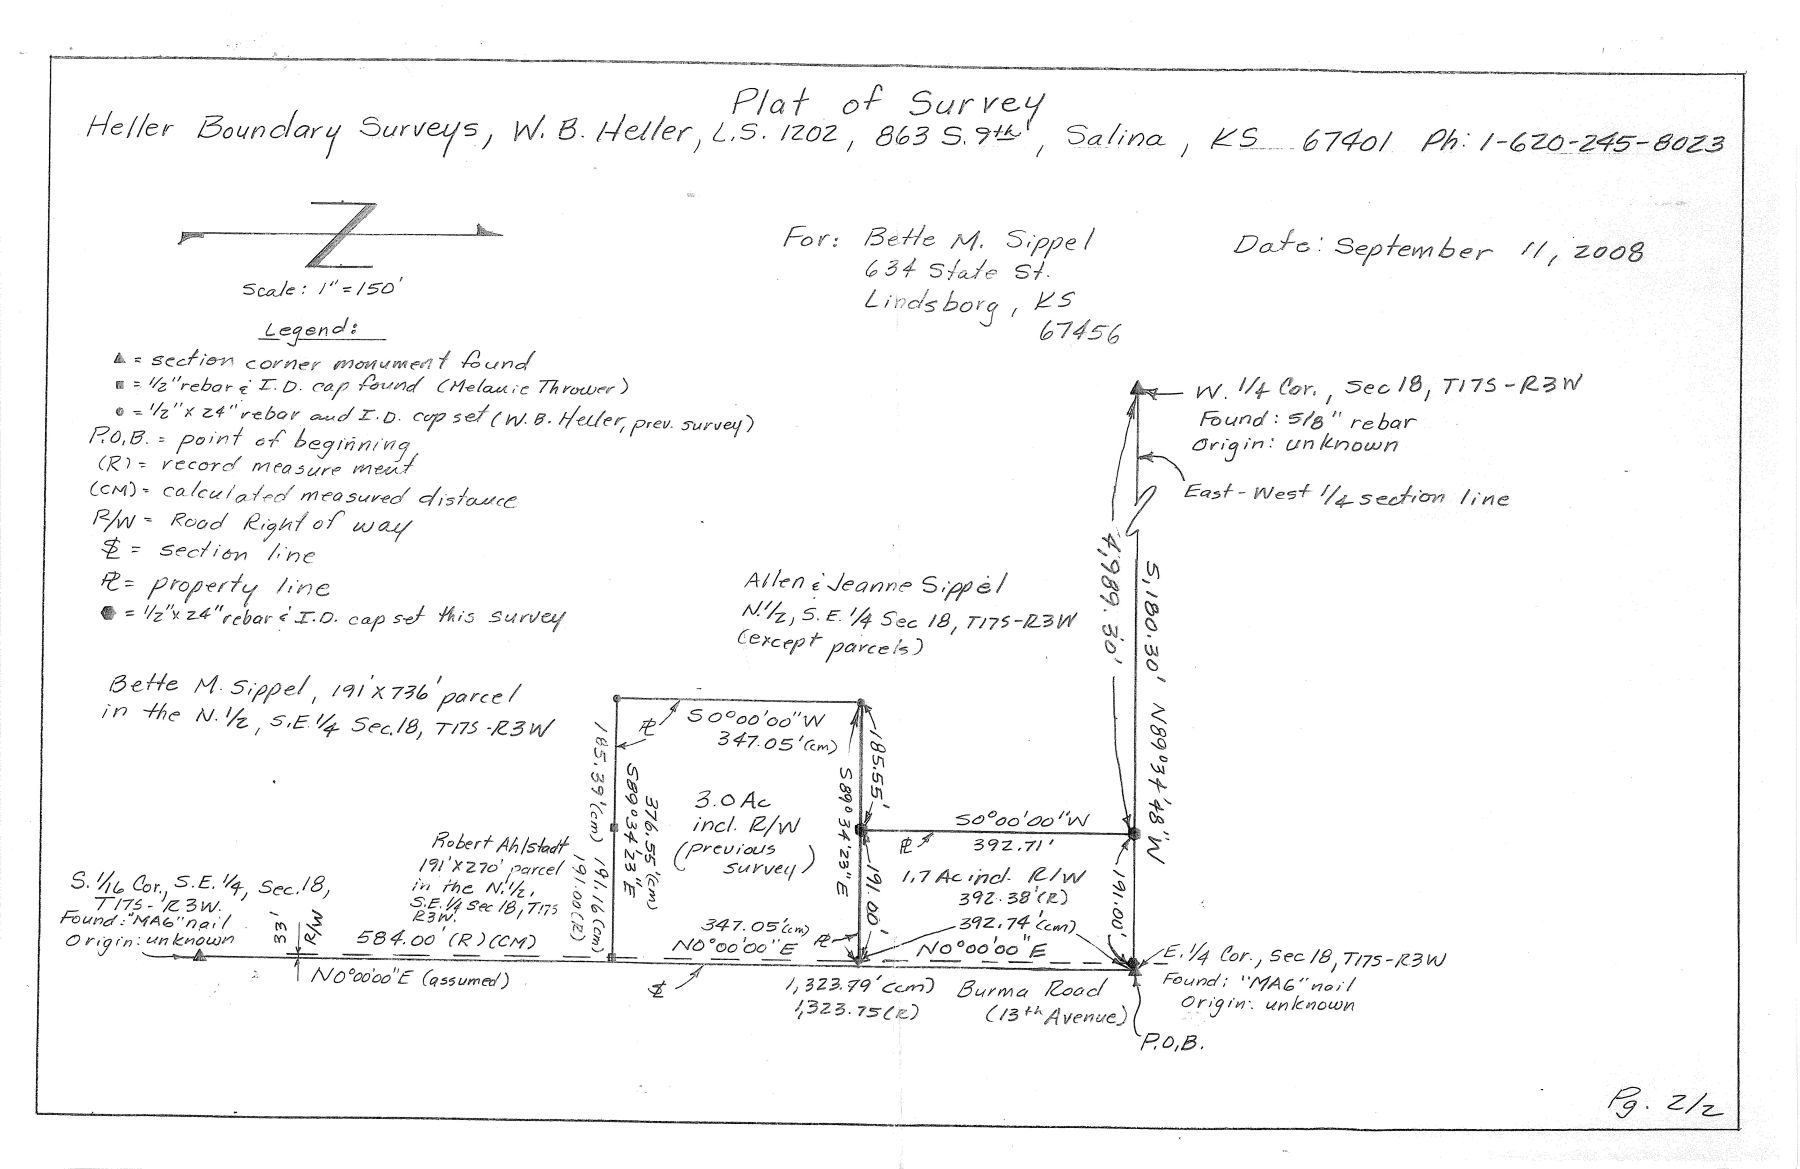 Plat of Survey
Heller Boundary Surveys, W. B. Heller, L.S. 1202, 863 S. 9th, Salina, KS 67401 Ph: 1-620-245-8023
Z
Scale: 1" = 150'
For: Bette M. Sippel
634 State St.
Lindsborg, KS
67456
Date: September 11, 2008
Legend:
▲ = section corner monument found
■ = 1/2" rebar & I.D. cap found (Melanie Thrower)
● = 1/2" x 24" rebar and I.D. cap set (W. B. Heller, prev. survey)
P.O.B. = point of beginning
(R) = record measurement
(CM) = calculated measured distance
R/W = Road Right of way
SL = section line
PL = property line
⬢ = 1/2" x 24" rebar & I.D. cap set this survey
W. 1/4 Cor., Sec 18, T17S-R3W
Found: 5/8" rebar
Origin: unknown
East-West 1/4 section line
4,989.30'
5,180.30' N89°34'48"W
Allen & Jeanne Sippel
N.1/2, S.E. 1/4 Sec 18, T17S-R3W
(except parcels)
Bette M. Sippel, 191' x 736' parcel
in the N.1/2, S.E.1/4 Sec.18, T17S-R3W
PL
S0°00'00"W
347.05' (cm)
185.39' (cm)
S89°34'23"E
376.55' (cm)
191.16 (cm)
191.00 (R)
3.0 Ac
incl. R/W
(previous
survey)
185.55'
S89°34'23"E
191.00'
S0°00'00"W
PL
392.71'
1.7 Ac incl. R/W
392.38' (R)
392.74' (cm)
N0°00'00"E
191.00'
Robert Ahlstadt
191' x 270' parcel
in the N.1/2,
S.E.1/4 Sec 18, T17S
R3W.
S. 1/16 Cor., S.E. 1/4, Sec. 18,
T17S-R3W.
Found: "MAG" nail
Origin: unknown
33'
R/W
584.00' (R) (CM)
N0°00'00"E (assumed)
347.05' (cm)
N0°00'00"E
PL
SL
1,323.79' (cm)
1,323.75 (R)
Burma Road
(13th Avenue)
E. 1/4 Cor., Sec 18, T17S-R3W
Found: "MAG" nail
Origin: unknown
P.O.B.
Pg. 2/2